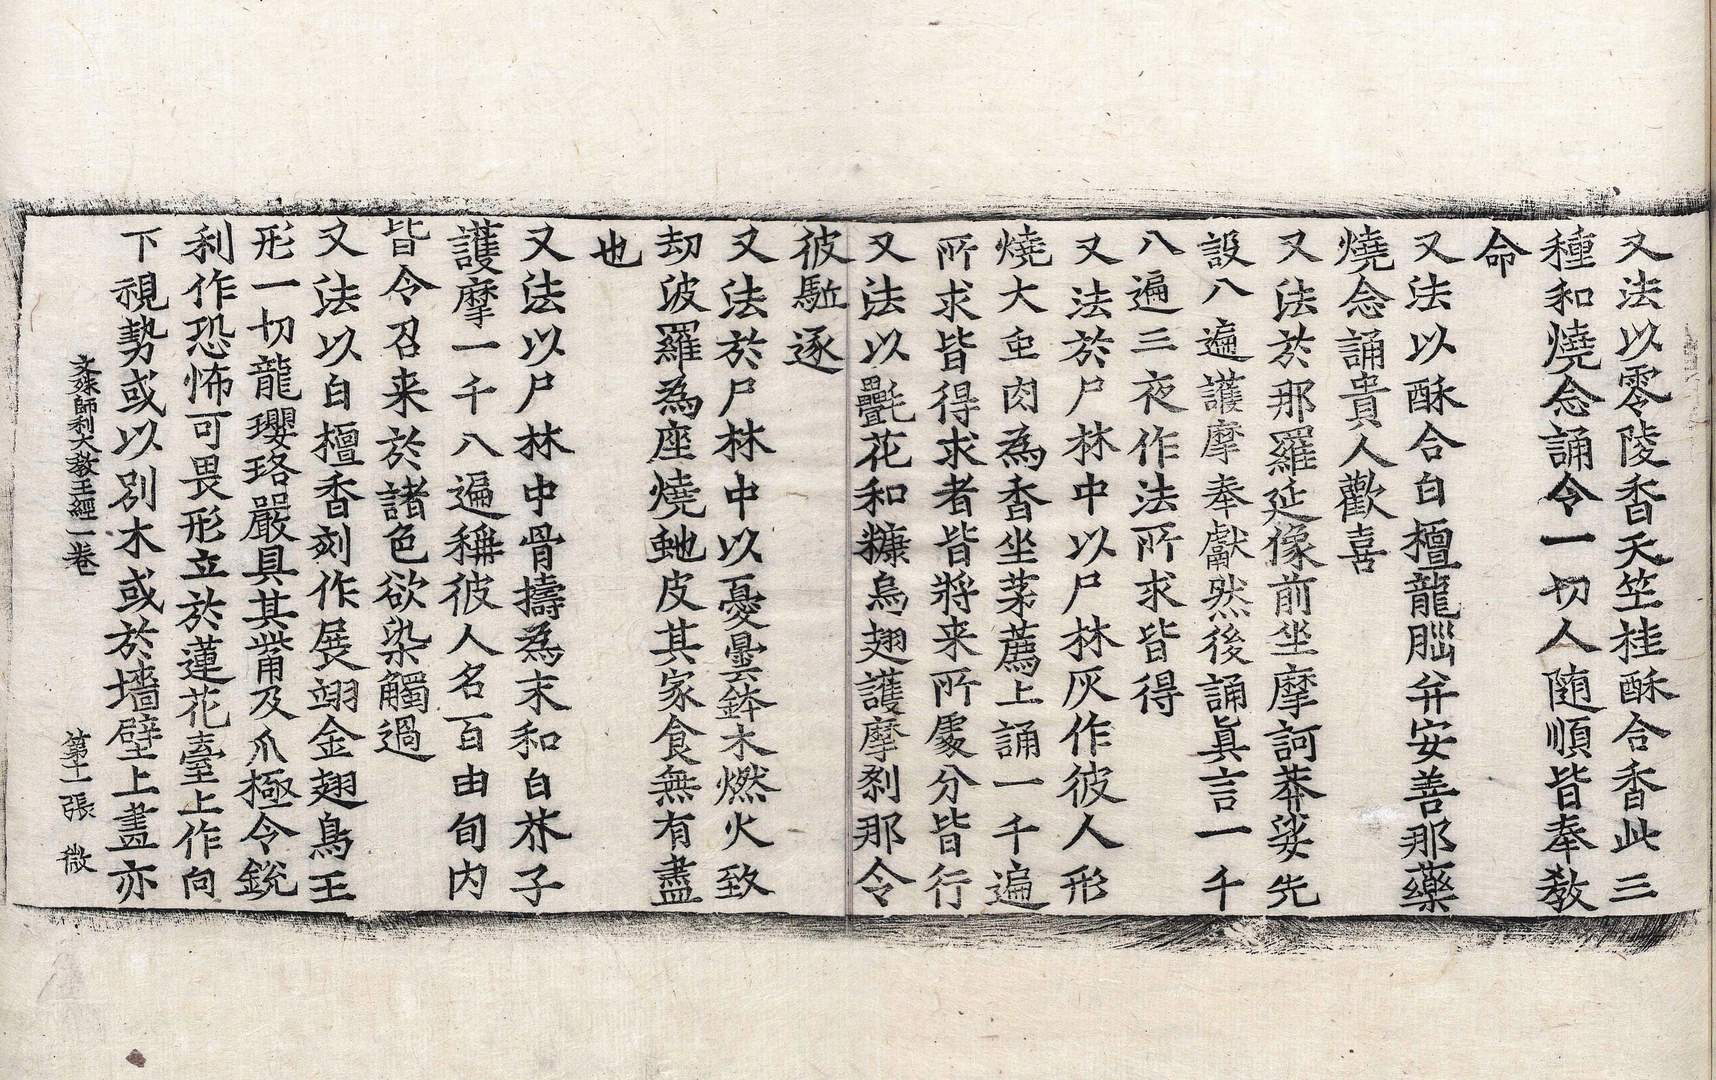 又法以零陵香天竺桂酥合香此三
種和燒念誦令一切人随順皆奉教
命
又法以酥合白檀龍腦并安善那藥
燒念誦貴人歡喜
又法於那羅延像前坐摩訶莽娑先
設八遍護摩奉獻然後誦真言一千
八遍三夜作法所求皆得
又法於尸林中以尸林灰作彼人形
燒大䖝肉為香坐茅薦上誦一千遍
所求皆得求者皆將来所處分皆行
又法以㲲花和糠烏翅護摩剎那令
彼駈逐
又法於尸林中以憂曇鉢木燃火致
劫波羅為座燒虵皮其家食無有盡
也
又法以尸林中骨擣為末和白芥子
護摩一千八遍稱彼人名百由旬内
皆令召来於諸色欲染觸過
又法以白檀香刻作展翅金翅鳥王
形一切龍瓔珞嚴具其觜及爪極令銳
利作恐怖可畏形立於蓮花臺上作向
下視勢或以別木或於墻壁上畫亦
文殊師利大教王經一卷 第十一張 微